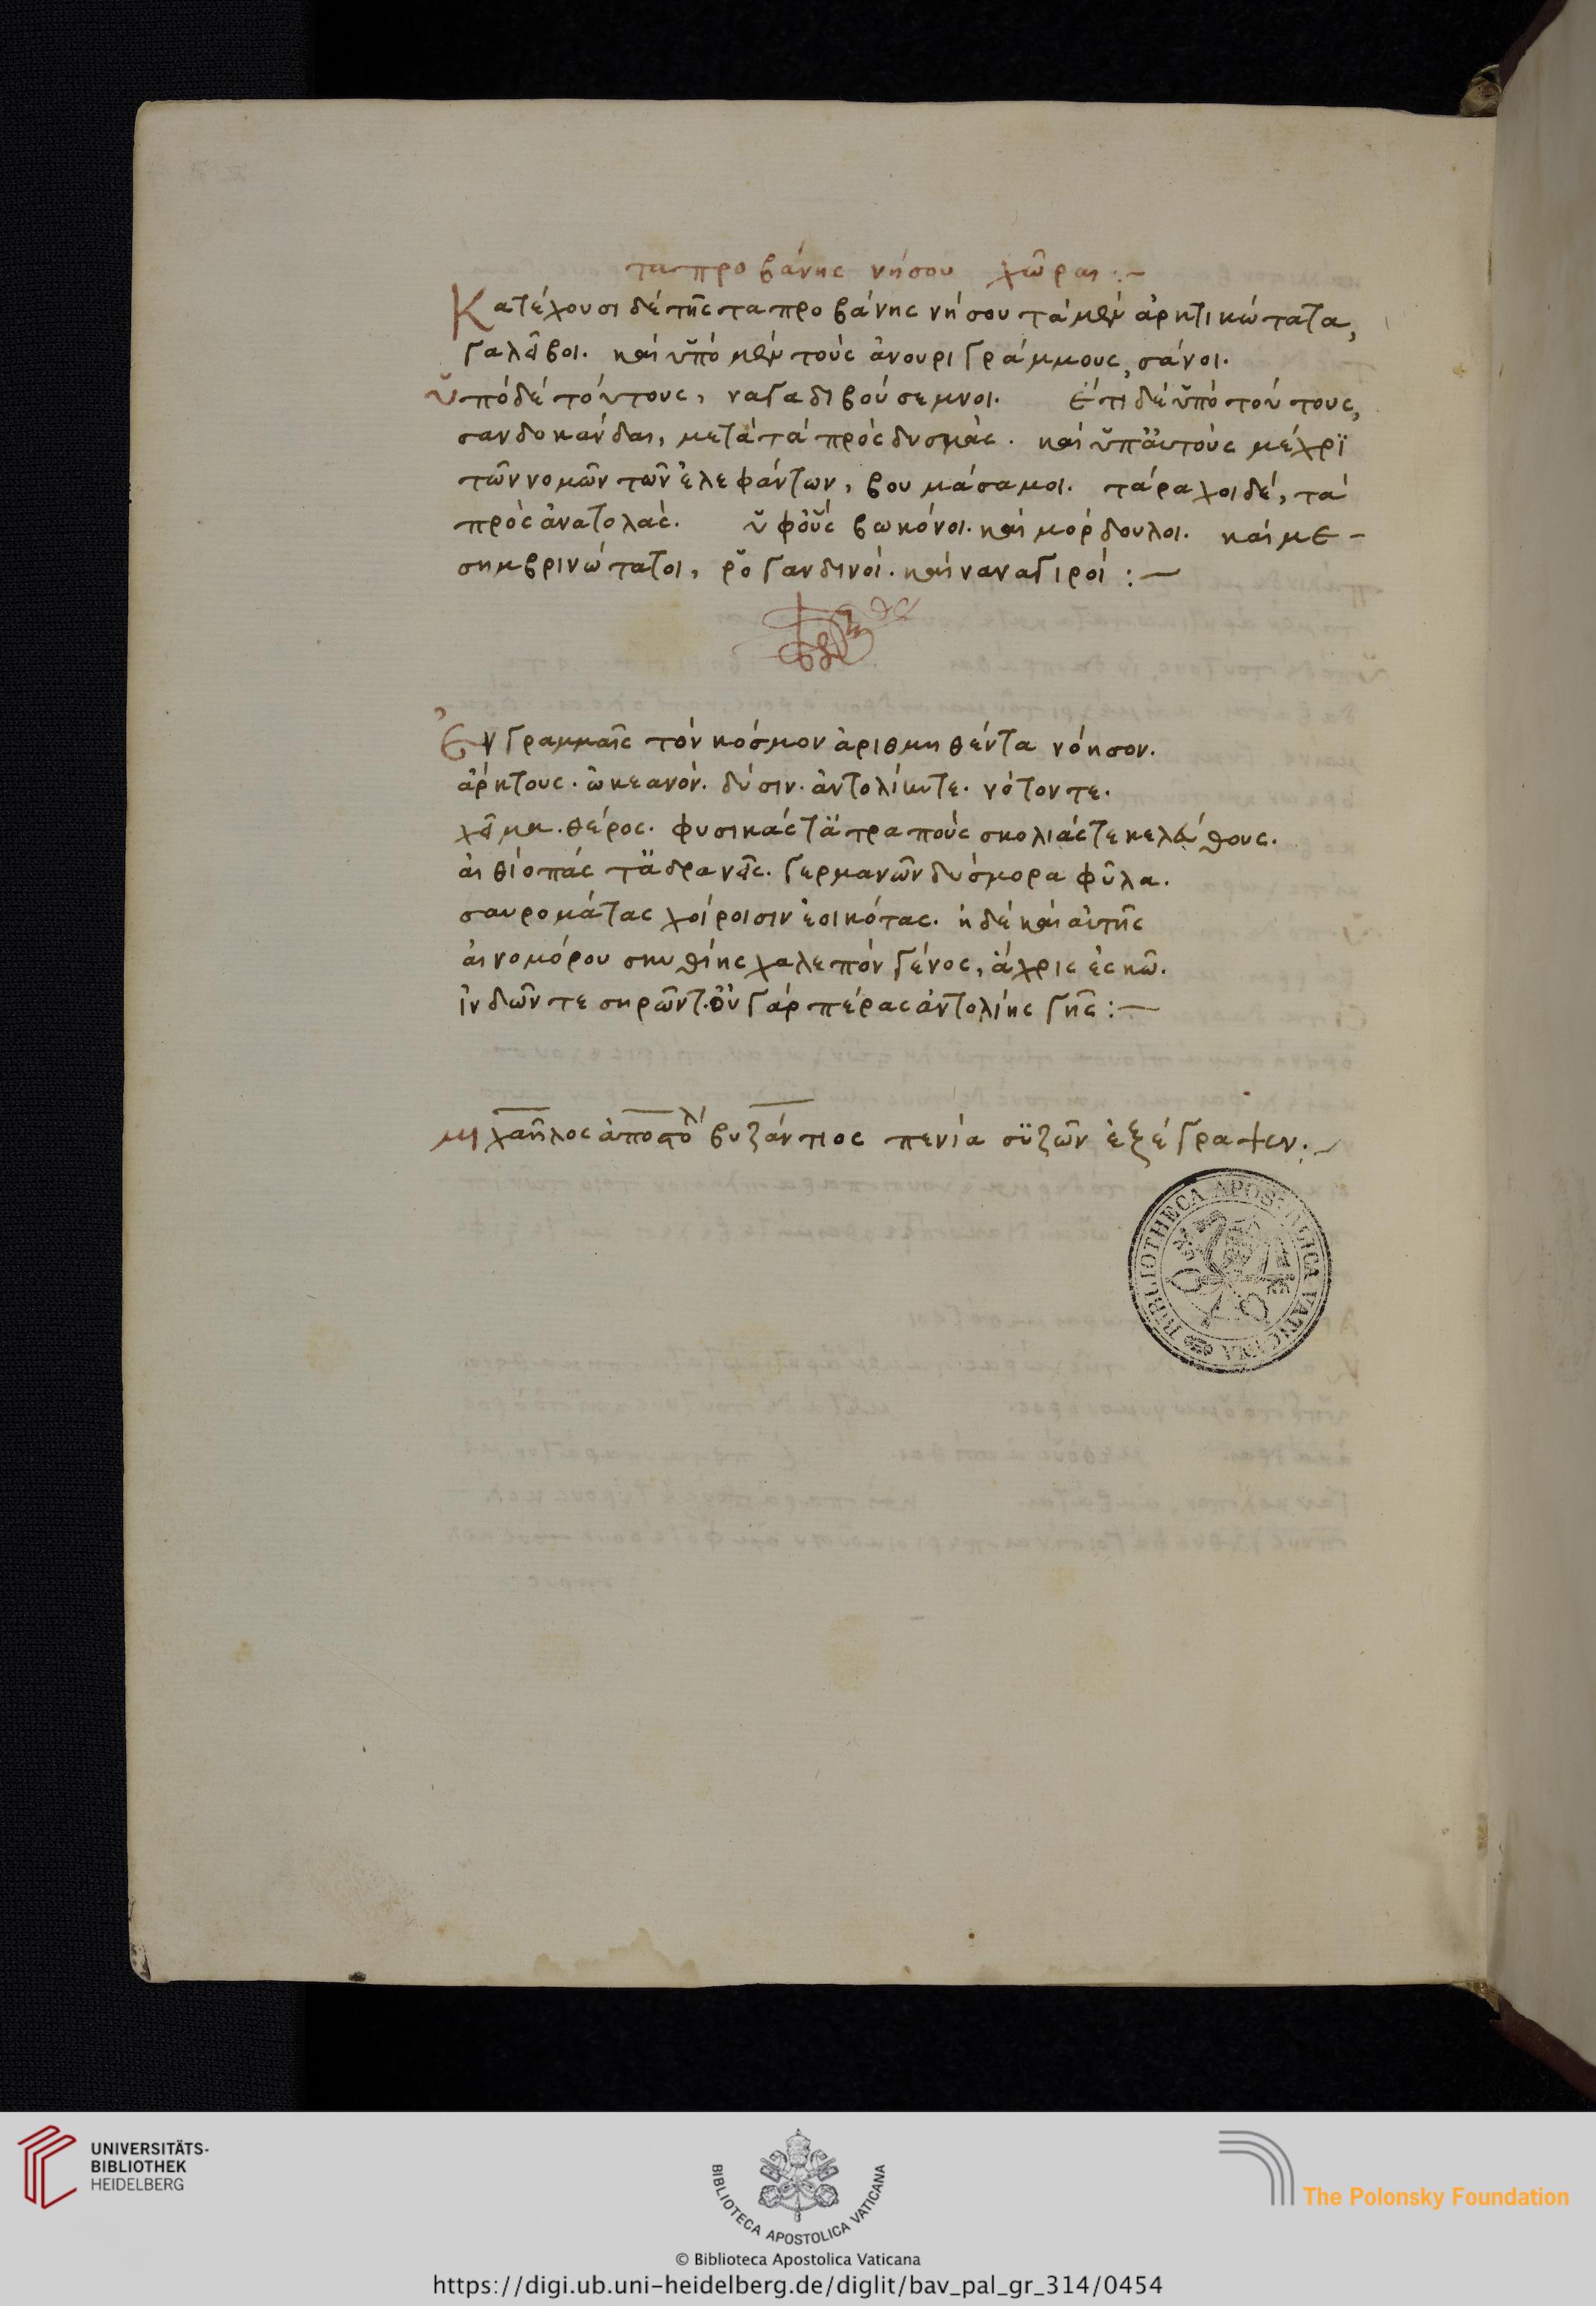 ταπροβάνης νήσου χῶραι :~
Κατέχουσι δέ τῆς ταπροβάνης νήσου τά μὲν ἀρκτικώτατα,
γαλῖβοι. καί ὑπό μὲν τούς ἀνουριγράμμους, σάνοι.
ὑπό δέ τούτους, ναγαδιβούσεμνοι. ἔτι δέ ὑπό τούτους,
σανδοκάνδαι, μετά τά πρός δυσμάς. καί ὑπ' αὐτούς μέχρϊ
τῶν νομῶν τῶν ἐλεφάντων, βουμάσαμοι. τάραχοι δέ, τά
πρός ἀνατολάς. ὑφ' οὕς βωκόνοι. καί μόρδουλοι. καί με-
σημβρινώτατοι, ῥογανδινοί. καί ναναγιροί :~
Ἐν γραμμαῖς τόν κόσμον ἀριθμηθέντα νόησον.
ἄρκτους. ὠκεανόν. δύσιν. ἀντολίην τε. νότον τε.
χεῖμα. θέρος. φυσικάς τ' ἀτραπούς σκολιάς τε κελεύθους.
αἰθίοπάς τ' ἀδρανεῖς. γερμανῶν δύσμορα φῦλα.
σαυρομάτας χοίροισιν ἐοικότας. ἠδέ καί αὐτῆς
αἰνομόρου σκυθίης χαλεπόν γένος, ἄχρις ἐς κῶ.
ἰνδῶν τε σηρῶν τ'. οὐ γάρ πέρας ἀντολίης γῆς :~
μιχαῆλος ἀποστόλ βυζάντιος πενία συζῶν ἐξέγραψεν :~
BIBLIOTHECA APOSTOLICA VATICANA
UNIVERSITÄTS-
BIBLIOTHEK
HEIDELBERG
BIBLIOTECA APOSTOLICA VATICANA
© Biblioteca Apostolica Vaticana
The Polonsky Foundation
https://digi.ub.uni-heidelberg.de/diglit/bav_pal_gr_314/0454